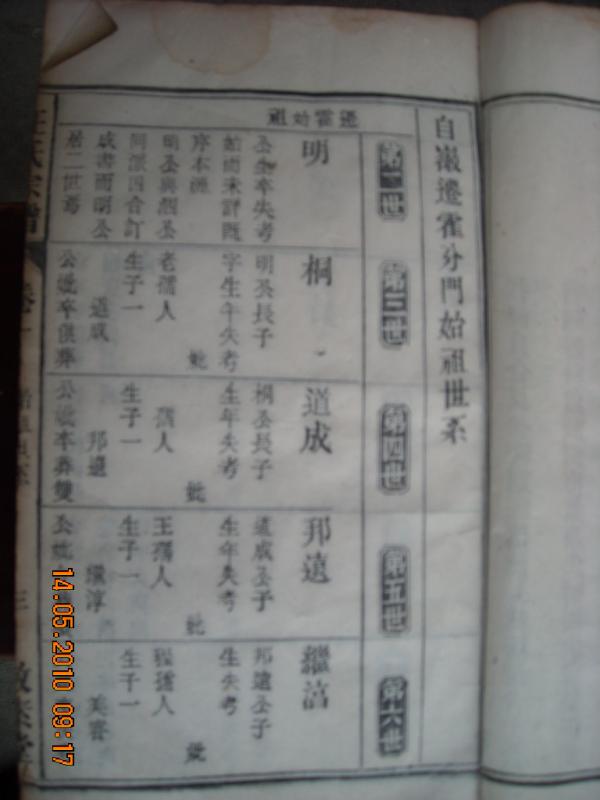 自嶽遷霍分門始祖世系
遷霍始祖
第二世
明
公生卒失考
序本源
明公與烱公
同派四合訂
成書而明公
居二世焉
第三世
桐
明公長子
字生年失考
妣
老孺人
生子一
道成
公妣卒俱葬
第四世
道成
桐公長子
生年失考
妣
孺人
生子一
邦遠
公妣卒葬雙
第五世
邦遠
道成公子
生年失考
妣
王孺人
生子一
繼淳
公妣
第六世
繼
邦遠公子
生失考
妣
程孺人
生子一
氏宗譜
卷一
三
14.05.2010 09:17